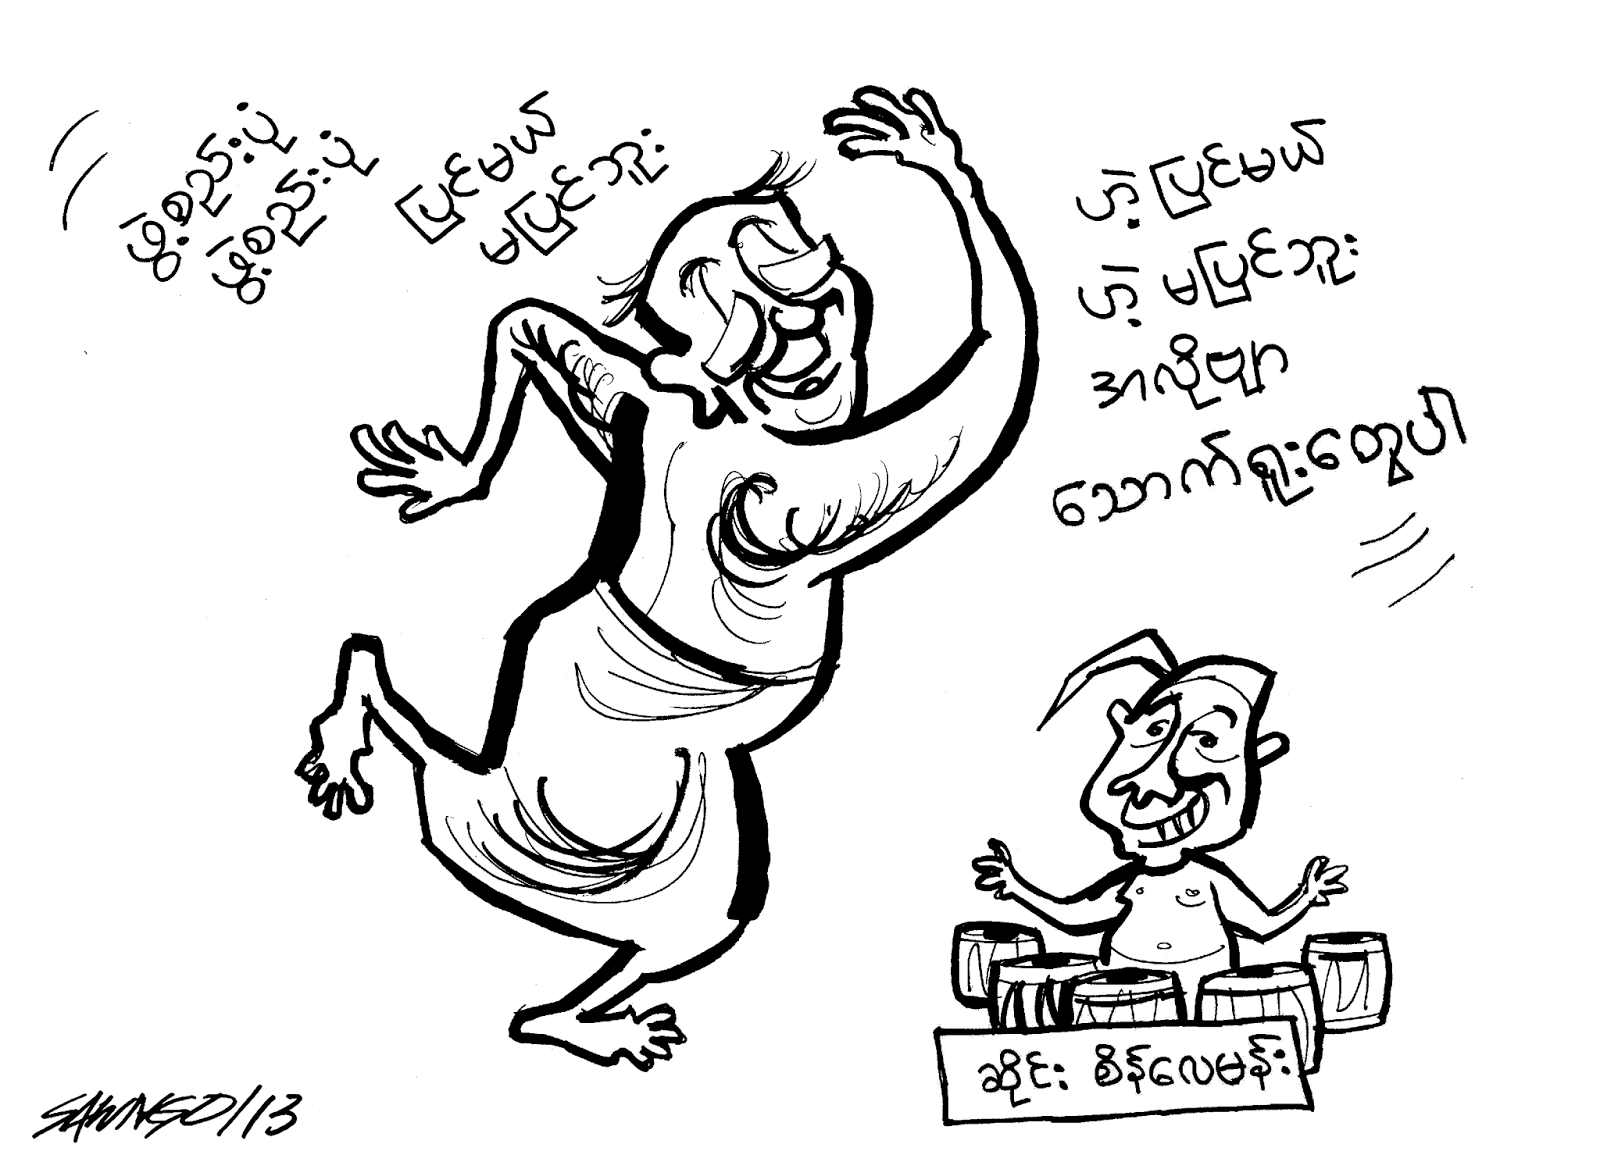 ဖွဲ့စည်းပုံ
ဖွဲ့စည်းပုံ
ပြင်မယ်
မပြင်ဘူး
ဟဲ့ ပြင်မယ်
ဟဲ့ မပြင်ဘူး
အလိုမျာ
သောက်ရူးတွေပါ
ဆိုင်း စိန်လေမန်း
SAWNGO/13